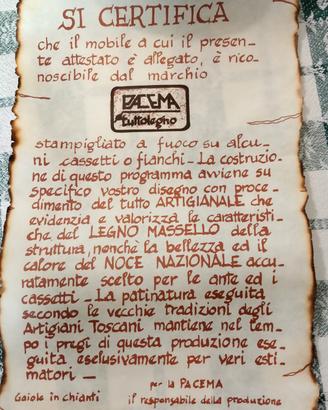 SI CERTIFICA
che il mobile a cui il presen_
te attestato è allegato, è rico_
noscibile dal marchio
PACEMA
tuttolegno
stampigliato a fuoco su alcu_
ni cassetti o fianchi_La costruzio_
ne di questo programma avviene su
specifico vostro disegno con proce_
dimento del tutto ARTIGIANALE che
evidenzia e valorizza le caratteristi_
che del LEGNO MASSELLO della
struttura, nonchè la bellezza ed il
calore del NOCE NAZIONALE accu_
ratamente scelto per le ante ed i
cassetti _ La patinatura eseguita
secondo le vecchie tradizioni degli
Artigiani Toscani mantiene nel tem_
po i pregi di questa produzione ese_
guita esclusivamente per veri esti_
matori _
per la PACEMA
Gaiole in chianti il responsabile della produzione